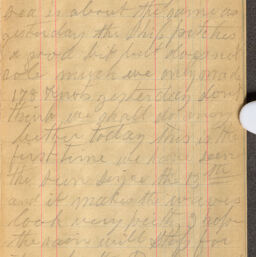 sea is about the same as
yesterday the ship pitches
a good bit but does not
role much we only made
173 knots yesterday dont
think we shall do any
better today this is the
first time we have seen
the sun since the 13th
and it makes the waves
look very I hope
the rain will stop for